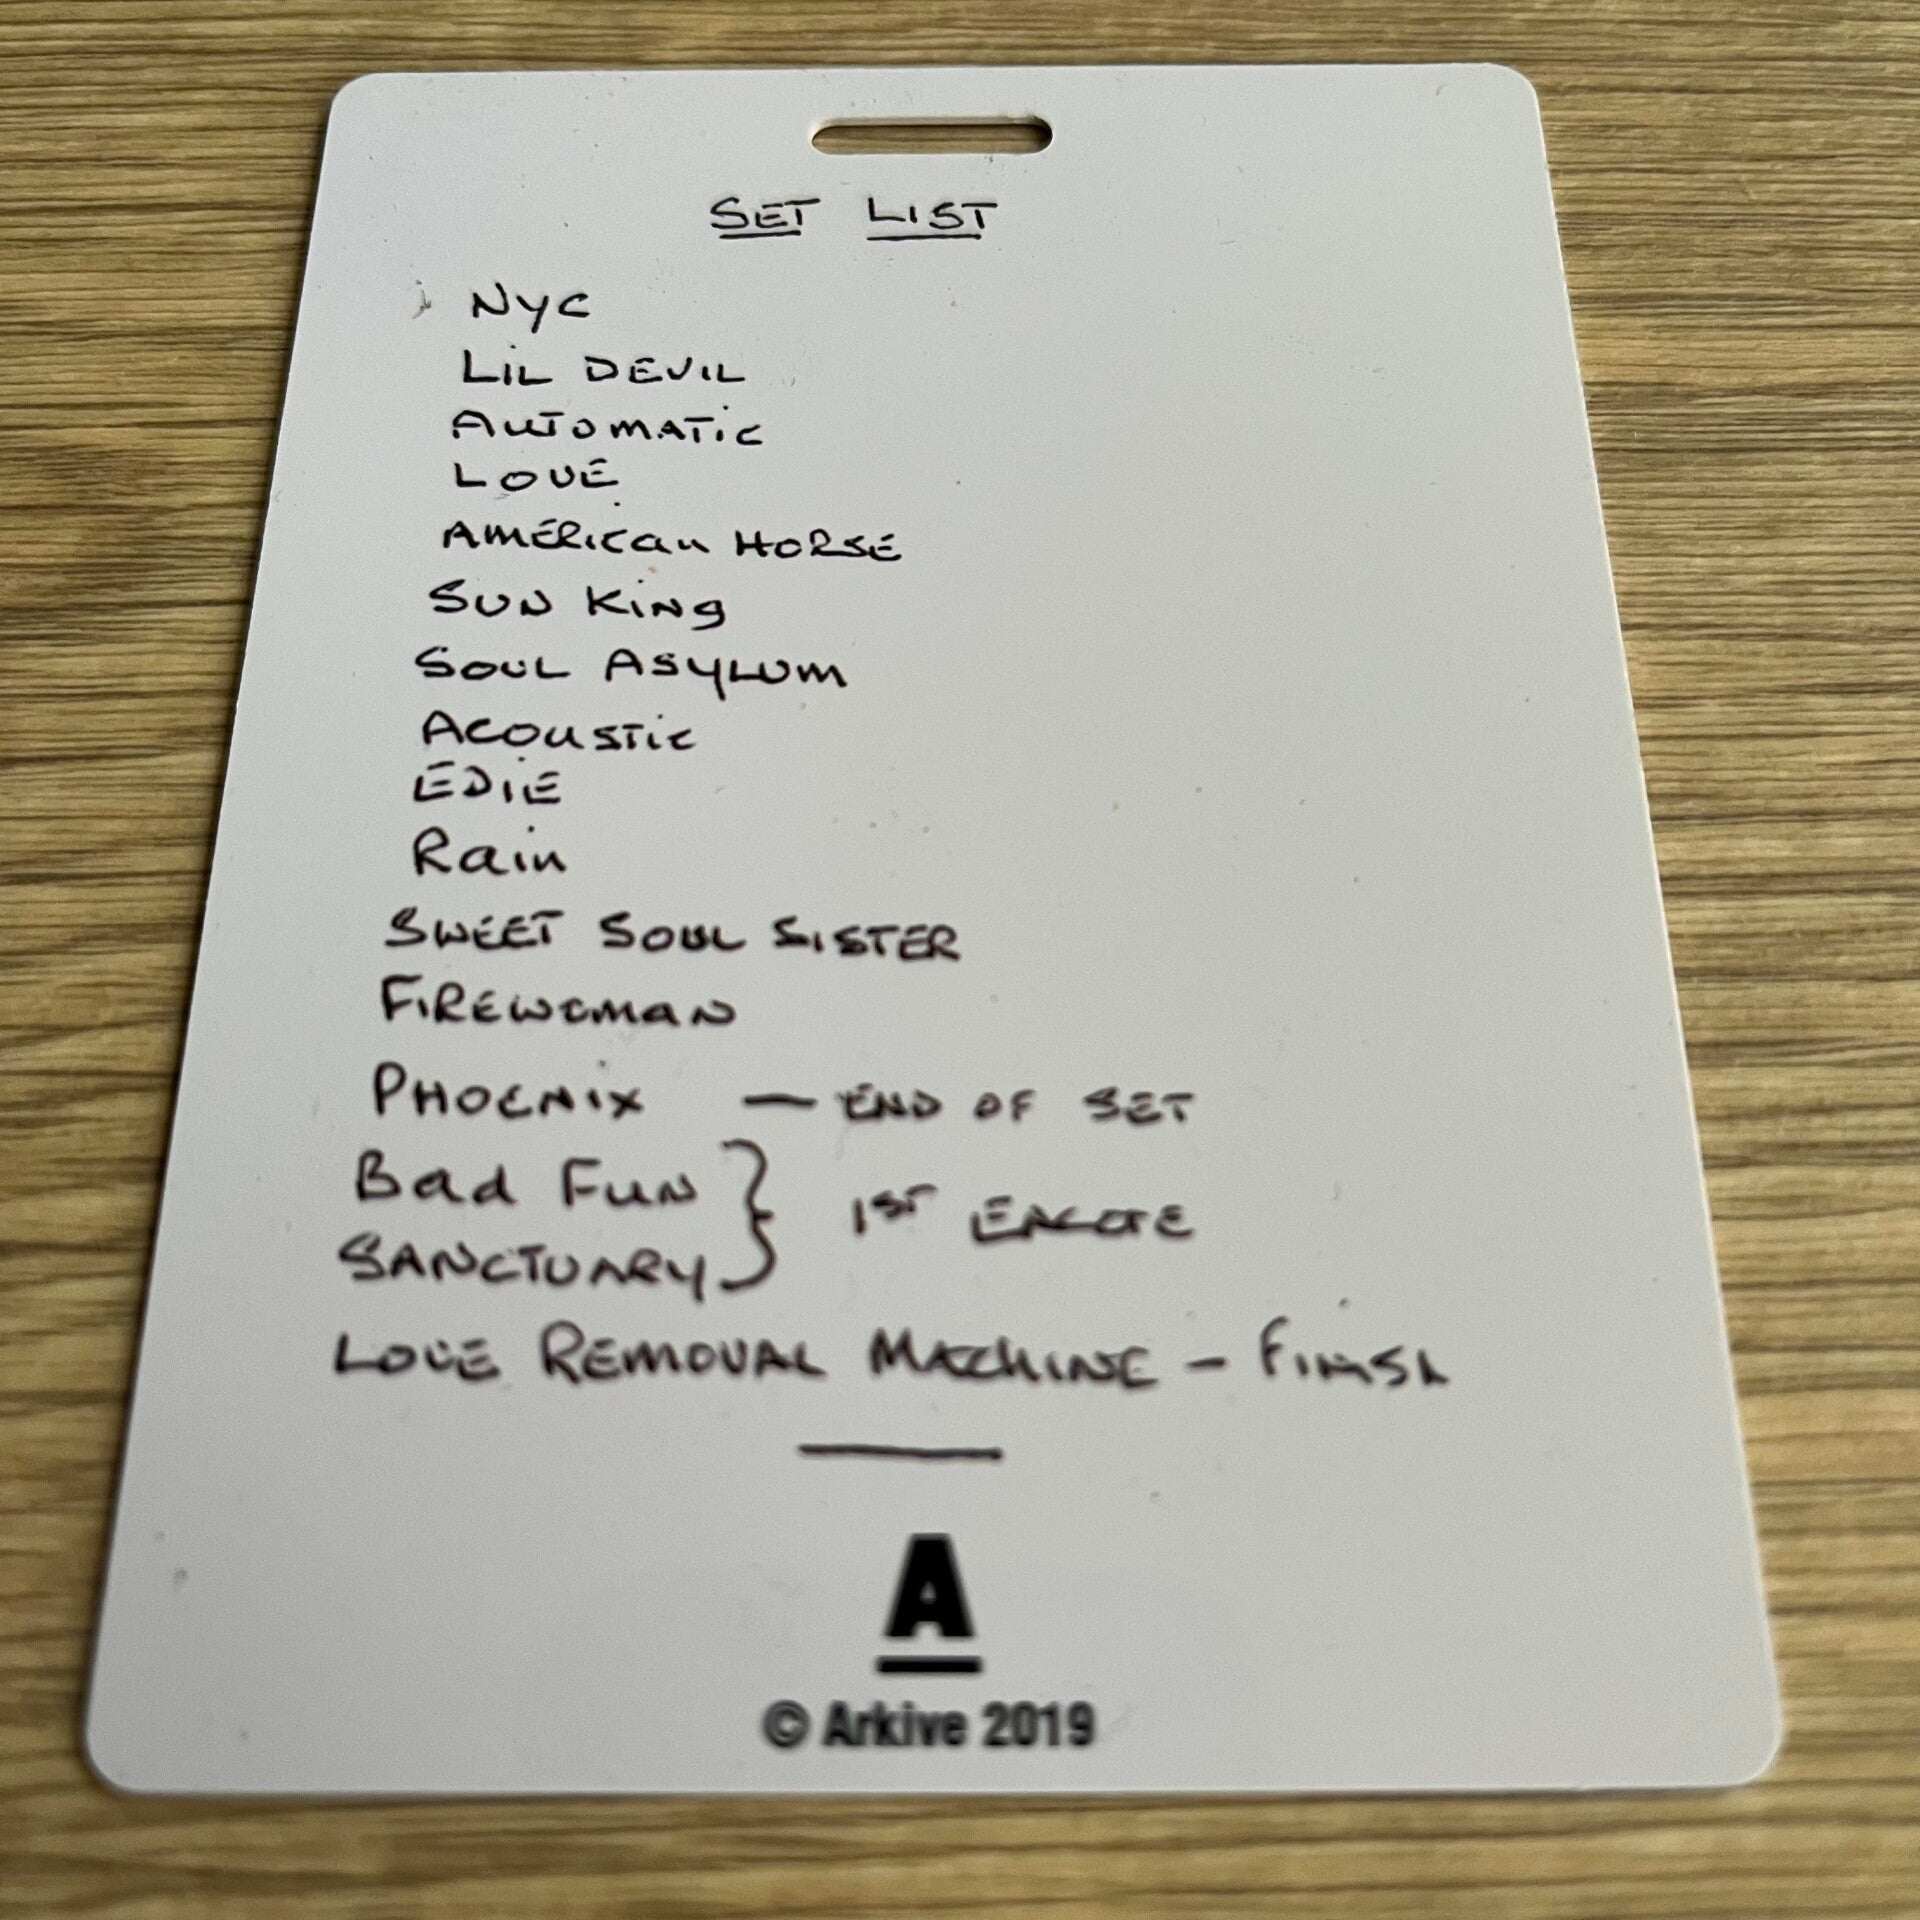 SET LIST
NYC
LIL DEVIL
AUTOMATIC
LOVE
AMERICAN HORSE
SUN KING
SOUL ASYLUM
ACOUSTIC
EDIE
Rain
SWEET SOUL SISTER
FIREWOMAN
PHOENIX — END OF SET
Bad Fun
SANCTUARY } 1ST ENCORE
LOVE REMOVAL MACHINE - FINISH
A
© Arkive 2019